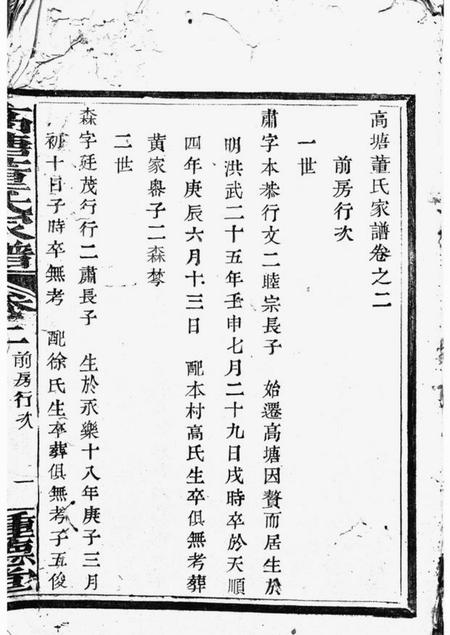 高塘董氏家譜卷之二
前房行次
一世
肅字本恭行文二睦宗長子　始遷高塘因贅而居生於
明洪武二十五年壬申七月二十九日戌時卒於天順
四年庚辰六月十三日　配本村高氏生卒俱無考葬
黃家嶴子二森棽
二世
森字廷茂行行二肅長子　生於永樂十八年庚子三月
初十日子時卒無考　配徐氏生卒葬俱無考子五俊
高塘董氏家譜　卷之二　前房行次　一